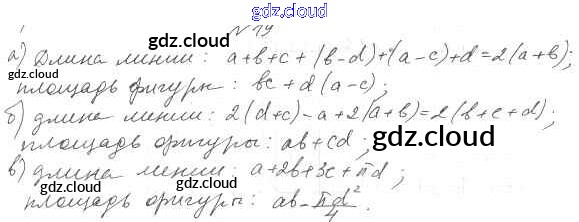 gdz.cloud
N 19
gdz.cloud
а) Длина линии: a+b+c+(b-d)+(a-c)+d=2(a+b);
площадь фигуры: bc+d(a-c);
gdz.cloud
б) длина линии: 2(d+c)-a+2(a+b)=2(b+c+d);
площадь фигуры: ab+cd;
gdz.cloud
gdz.cloud
в) длина линии: a+2b+3c+πd;
gdz.cloud
площадь фигуры: ab-πd²/4.
gdz.cloud